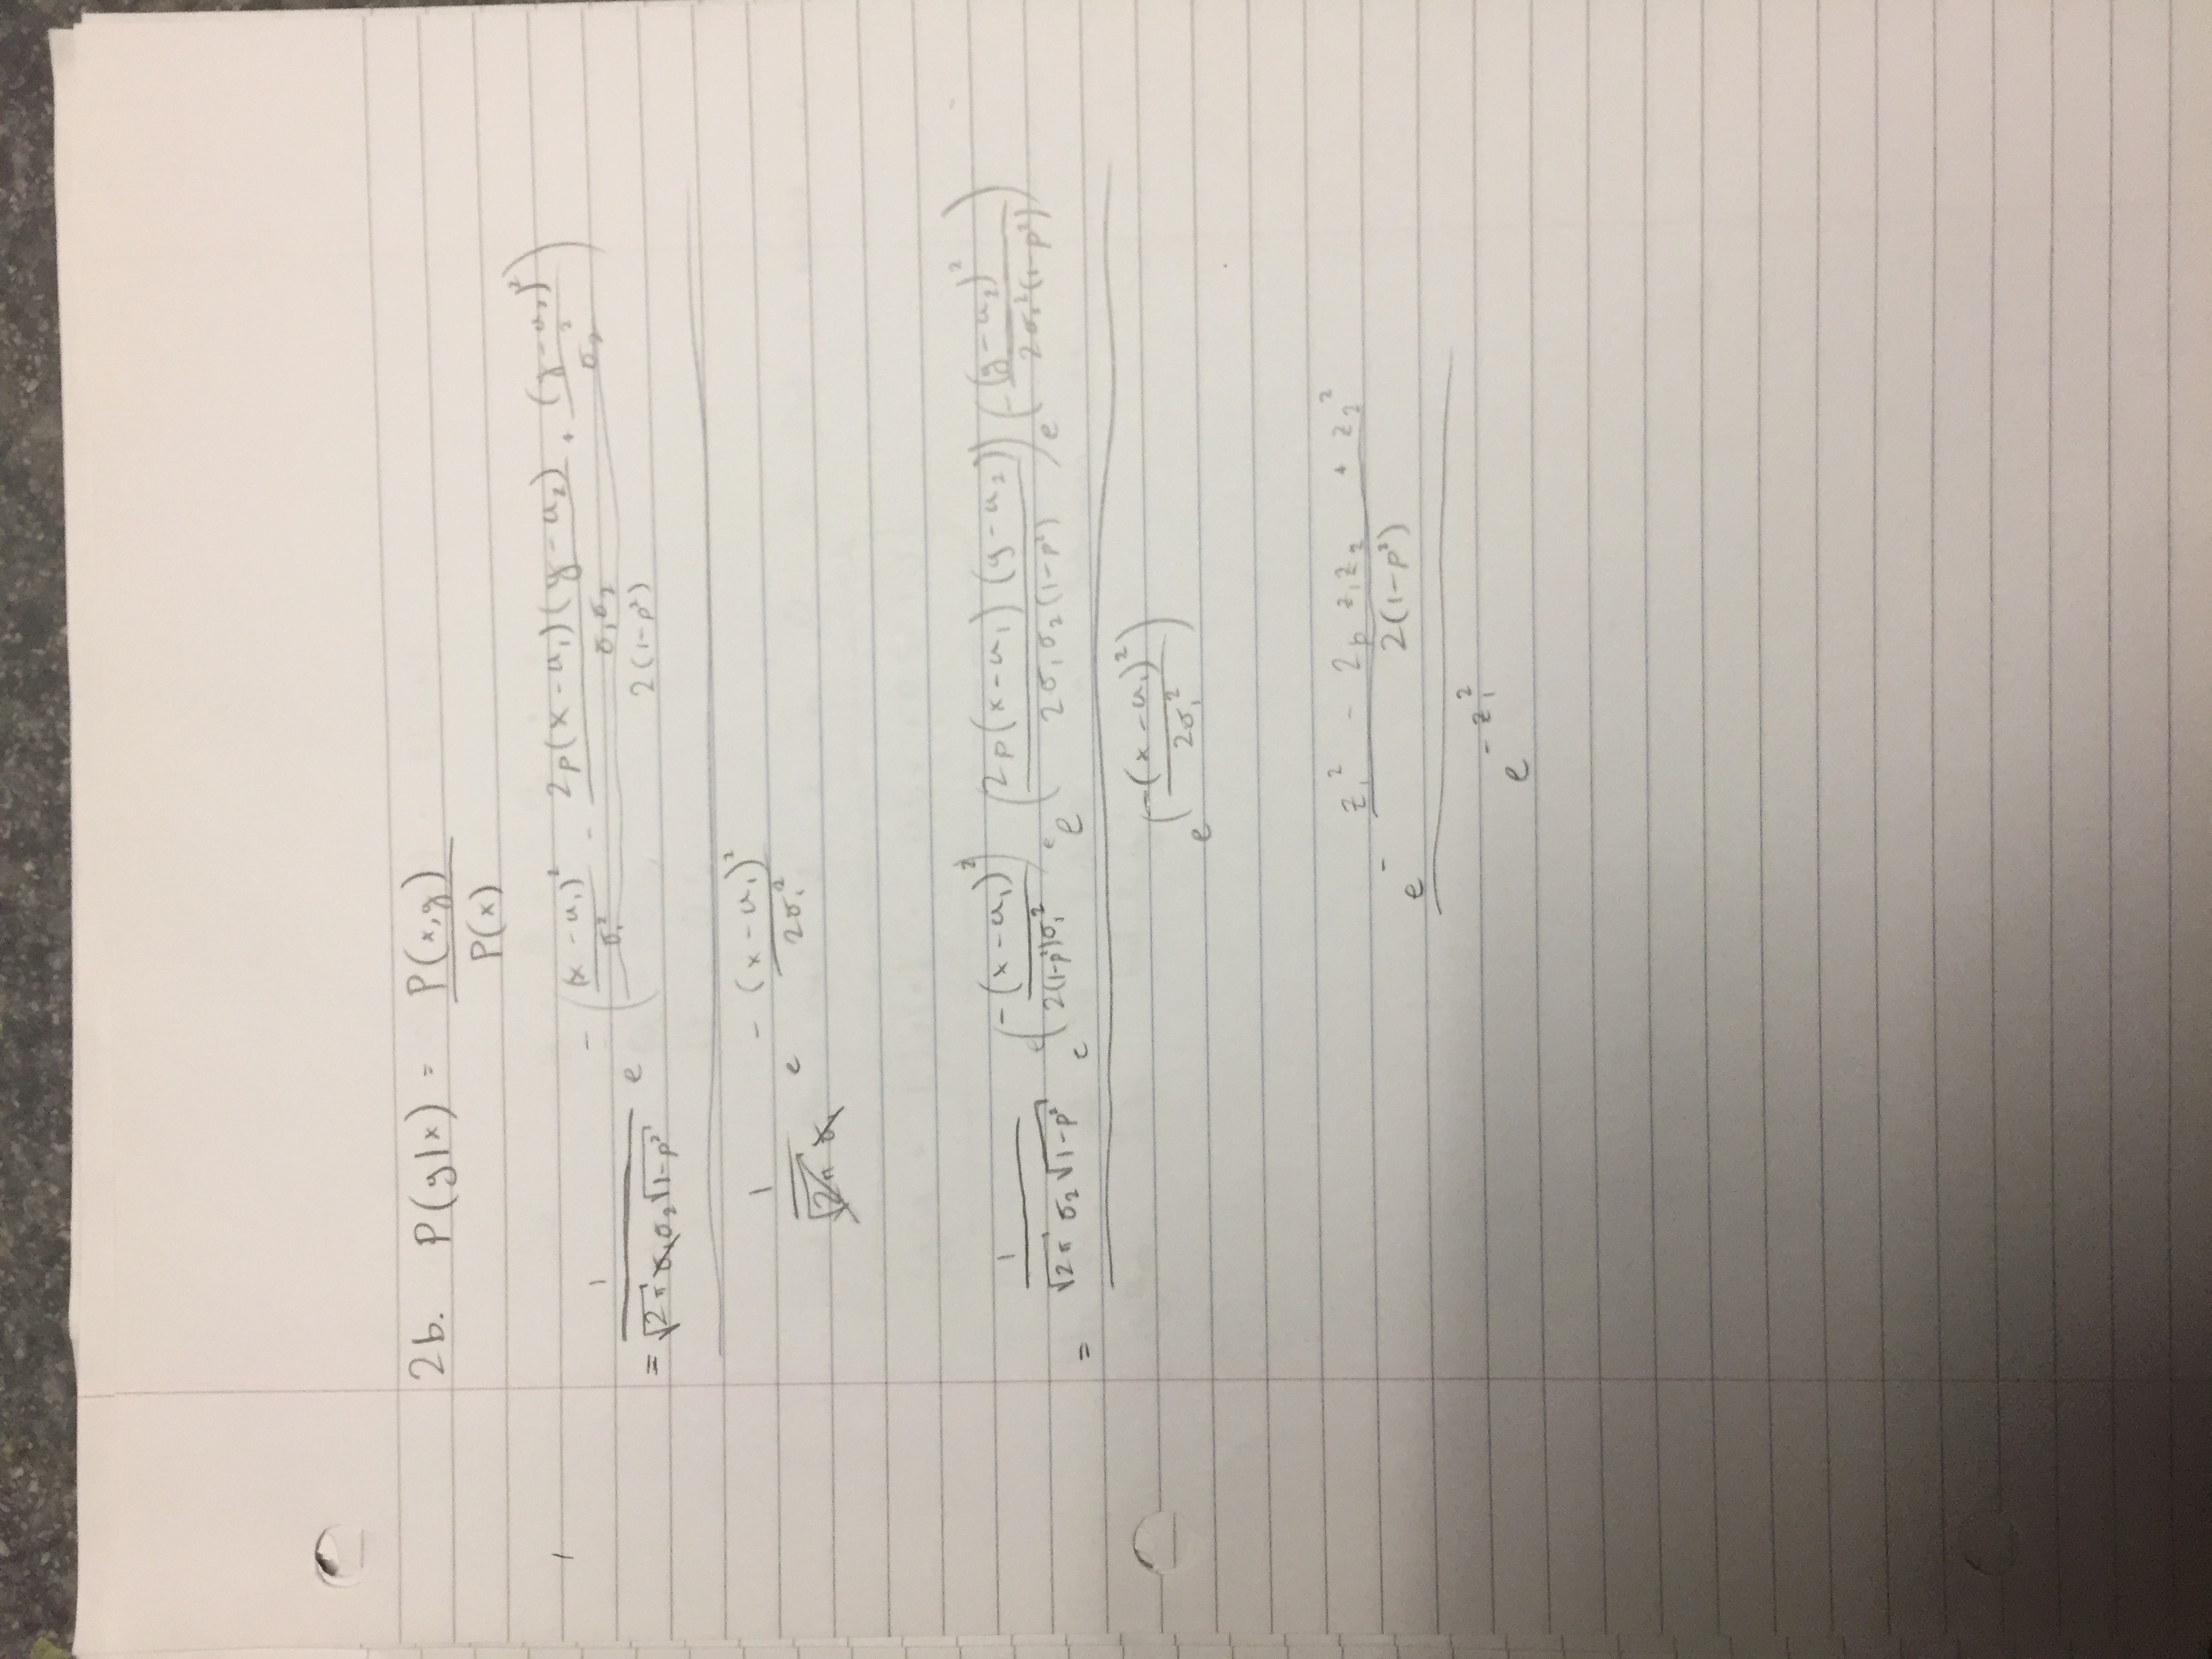 2b. P(y|x) = P(x,y) / P(x)
= 1 / (√2π σ₁ σ₂ √1-p²) e^ -( ( (x-u₁)² / σ₁² - 2p(x-u₁)(y-u₂) / σ₁σ₂ + (y-u₂)² / σ₂² ) / 2(1-p²) )
1 / (√2π σ₁) e^ - (x-u₁)² / 2σ₁²
= 1 / (√2π σ₂ √1-p²) e^( -(x-u₁)² / 2(1-p²)σ₁² ) e^( 2p(x-u₁)(y-u₂) / 2σ₁σ₂(1-p²) ) e^( -(y-u₂)² / 2σ₂²(1-p²) )
e^( -(x-u₁)² / 2σ₁² )
e^ - ( z₁² - 2p z₁z₂ + z₂² ) / 2(1-p²)
e^ -z₁²